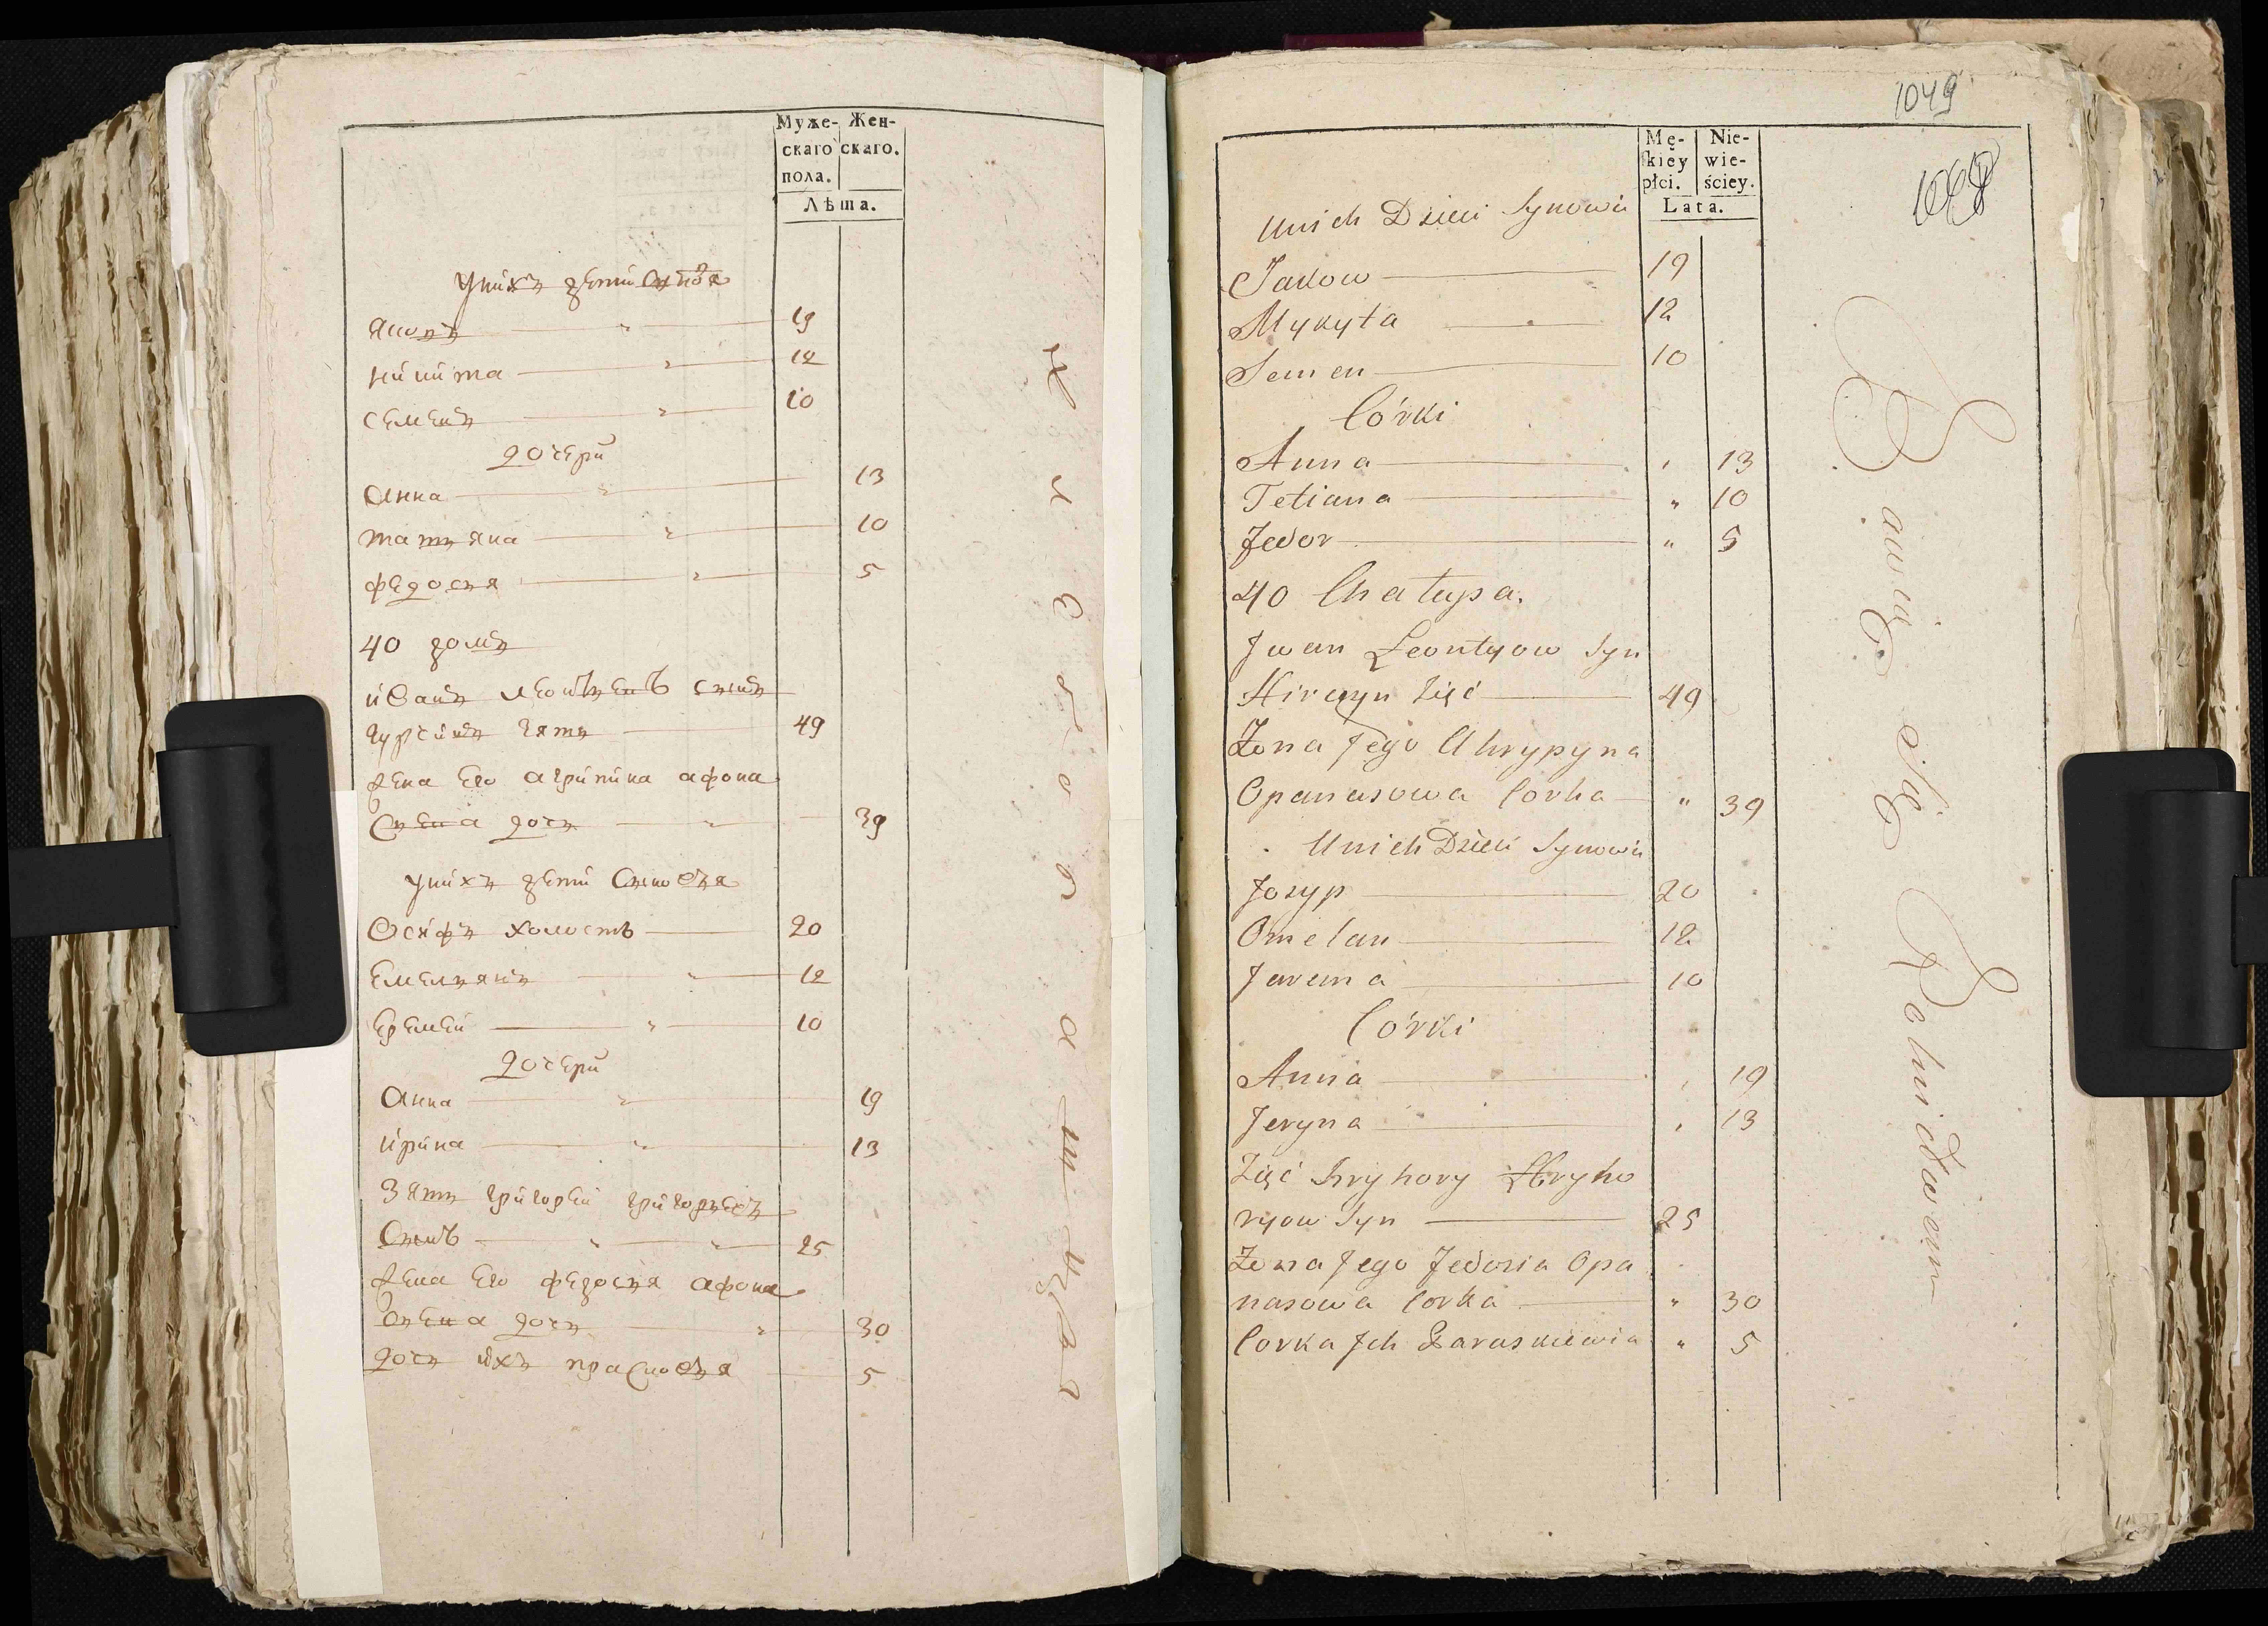 Муже-
скаго
пола.
Жен-
скаго.
Лѣта.
Унихъ дети Сыновя
Яковъ 19
Никита 12
Семенъ 10
дочери
Анна 13
татъяна 10
федосъя 5
40 домъ
иванъ леонтъевъ сынъ
гурсинъ зятъ 49
жена его агрипина афона
съева дочъ 39
Унихъ дети Сыновъя
Осифъ холостъ 20
Емелъянъ 12
Еремей 10
дочери
Анна 19
ирина 13
Зятъ григорей григоръевъ
Сынъ 25
жена его федосъя афона
съева дочъ 30
дочъ ихъ прасковъя 5
1049
Mę-
skiey
płci.
Nie-
wie-
ściey.
Lata.
Unich Dzieci Synowie
Jakow 19
Mykyta 12
Semen 10
Córki
Anna " 13
Tetiana " 10
Fedor " 5
40 Chałupa.
Jwan Leontyow Syn
Hirczyn Zięć 49
Żona Jego Ahrypyna
Opanasowa Corka " 39
Unich Dzieci Synowie
Josyp 20
Omelan 12
Jarema 10
Córki
Anna " 19
Jeryna " 13
Zięć Hryhory Hryho
ryow Syn 25
Żona Jego Fedosia Opa
nasowa Corka " 30
Corka Jch Paraskiewia " 5